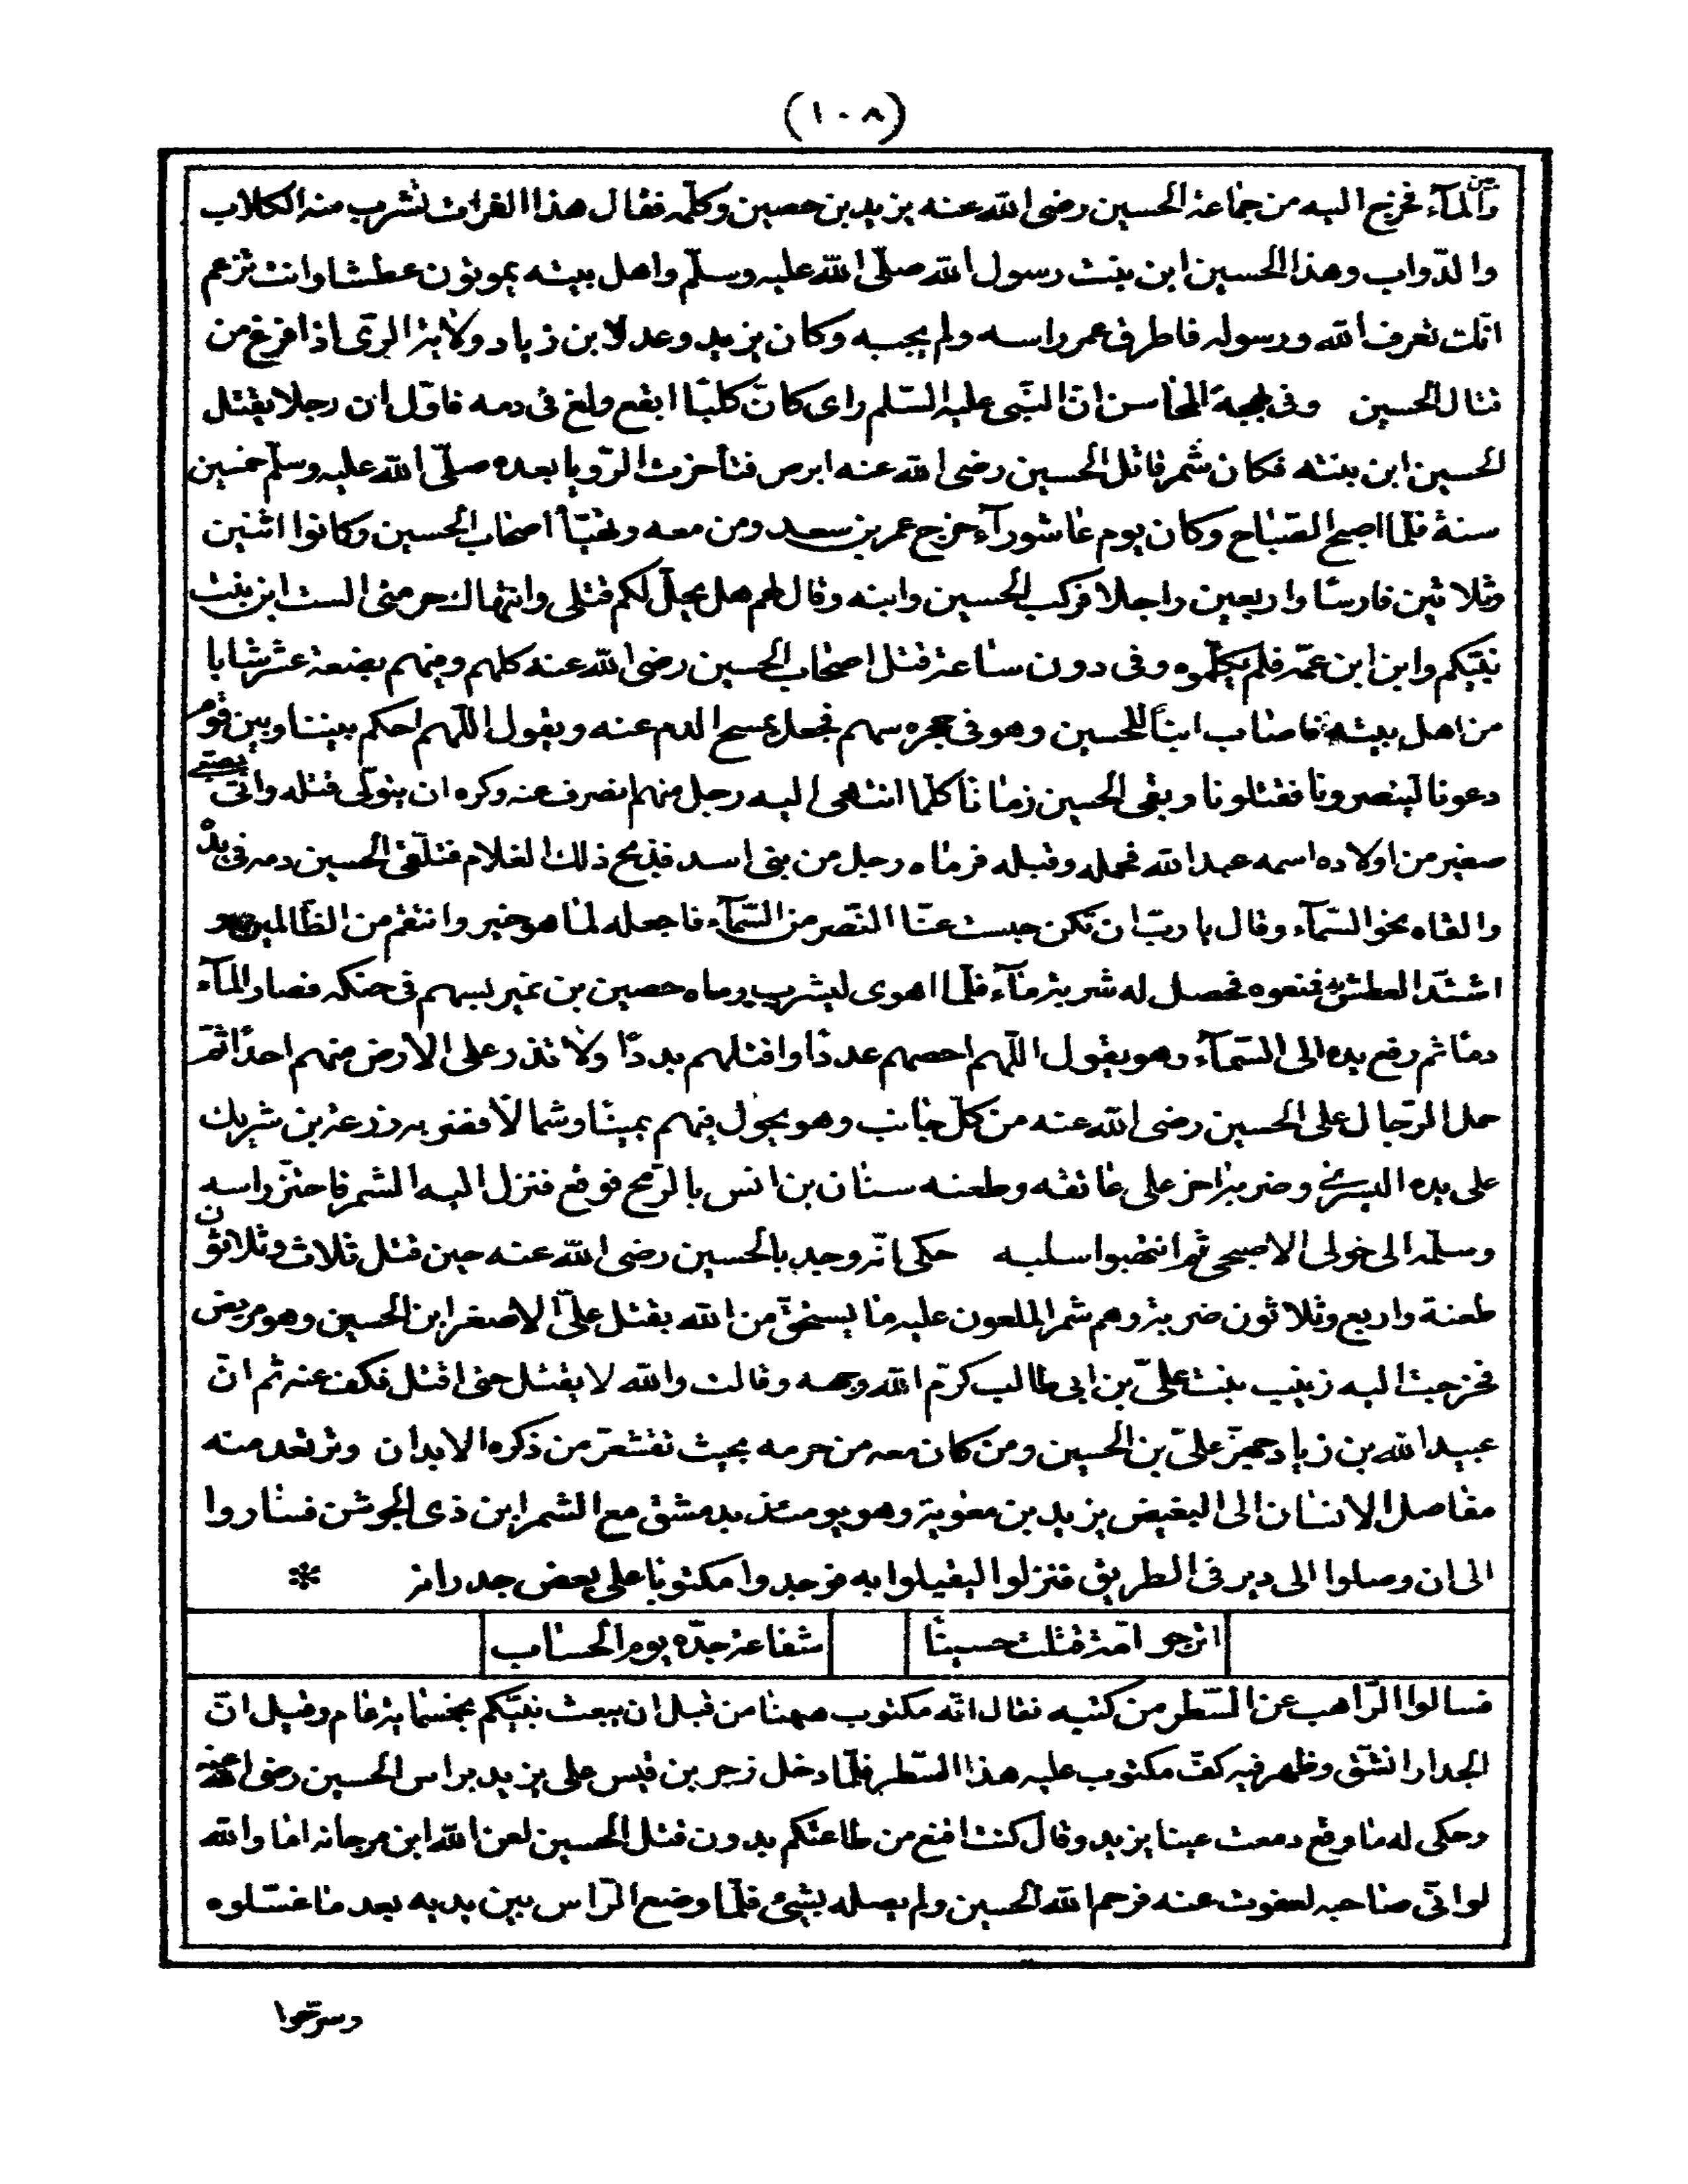 (١٠٨)
من والمآء فخرج اليه من جماعة الحسين رضى الله عنه يزيد بن حصين وكلّمه فقال هذا الفرات تشرب منه الكلاب
والدّواب وهذا الحسين ابن بنت رسول الله صلّى الله عليه وسلّم واهل بيته يموتون عطشا وانت تزعم
انّك تعرف الله ورسوله فاطرق عمر راسه ولم يجبه وكان يزيد وعد لابن زياد ولاية الرّى اذا فرغ من
قتال الحسين وفى بهجة المحاسن انّ النّبى عليه السّلم راى كانّ كلبًا ابقع ولغ فى دمه فاوّل ان رجلا يقتل
الحسين ابن بنته فكان شمر قاتل الحسين رضى الله عنه ابرص فتأخرت الرّويا بعده صلّى الله عليه وسلّم خمسين
سنة فلمّا اصبح الصّباح وكان يوم عاشورآء خرج عمر بن سعد ومن معه وتهيّأ اصحاب الحسين وكانوا اثنين
وثلاثين فارسًا واربعين راجلا فركب الحسين وابنه وقال لهم هل يحلّ لكم قتلى وانتهاك حرمتى الست ابن بنت
نبيّكم وابن ابن عمّه فلم يكلّموه وفى دون ساعة قتل اصحاب الحسين رضى الله عنه كلهم ومنهم بضعة عشر شابا
من اهل بيته فاصاب ابنًا للحسين وهو فى حجره سهم فجعل يمسح الدم عنه ويقول اللّهم احكم بيننا وبين قوم
دعونا لينصرونا فقتلونا وبقى الحسين زمانًا كلّما انتهى اليه رجل منهم انصرف عنه وكره ان يتولّى قتله واتى بصبى
صغير من اولاده اسمه عبد الله فحمله وقبله فرماه رجل من بنى اسد فذبح ذلك الغلام فتلقّى الحسين دمه فى يده
والقاه نحو السّمآء وقال يا ربّ ان تكن حبست عنّا النّصر من السّمآء فاجعله لما هو خير وانتقم من الظّالمين و
اشتدّ العطش به فمنعوه فحصل له شربة مآء فلمّا اهوى ليشرب رماه حصين بن نمير بسهم فى حنكه فصار المآء
دمًا ثم رفع يده الى السّمآء وهو يقول اللّهم احصهم عددًا واقتلهم بددًا ولا تذر على الارض منهم احدًا ثمّ
حمل الرّجال على الحسين رضى الله عنه من كلّ جانب وهو يجول فيهم يمينًا وشمالًا فضربه زرعة بن شريك
على يده اليسرى وضربه اخر على عاتقه وطعنه سنان بن انس بالرّمح فوقع فنزل اليه الشمر فاحتزّ راسه
وسلّمه الى خولى الاصبحى ثم انتهبوا سلبه حكى انّه وجد بالحسين رضى الله عنه حين قتل ثلاث وثلاثون
طعنة واربع وثلاثون ضربة وهم شمر الملعون عليه ما يستحقّ من الله بقتل علىّ الاصغر ابن الحسين وهو مريض
فخرجت اليه زينب بنت علىّ بن ابى طالب كرّم الله وجهه وقالت والله لا يقتل حتى اقتل فكف عنه ثم انّ
عبيد الله بن زياد جهّز علىّ بن الحسين ومن كان معه من حرمه بحيث تقشعرّ من ذكره الابدان وترتعد منه
مفاصل الانسان الى البغيض يزيد بن معٰوية وهو يومئذ بدمشق مع الشمر ابن ذى الجوشن فساروا
الى ان وصلوا الى دير فى الطريق فنزلوا ليقيلوا به فوجدوا مكتوبا على بعض جدرانه *
اترجو امّة قتلت حسينًا شفاعة جدّه يوم الحساب
فسالوا الرّاهب عن السّطر من كتبه فقال انّه مكتوب ههنا من قبل ان يبعث نبيّكم بخمسمائة عام وقيل انّ
الجدار انشقّ وظهر فيه كفّ مكتوب عليه هذا السّطر فلمّا دخل زجر بن قيس على يزيد براس الحسين رضى الله عنه
وحكى له ما وقع دمعت عينا يزيد وقال كنت اقنع من طاعتكم بدون قتل الحسين لعن الله ابن مرجانه اما والله
لو انّى صاحبه لعفوت عنه فرحم الله الحسين ولم يصله بشىء فلمّا وضع الرّاس بين يديه بعد ما غسّلوه
وسرّحوا